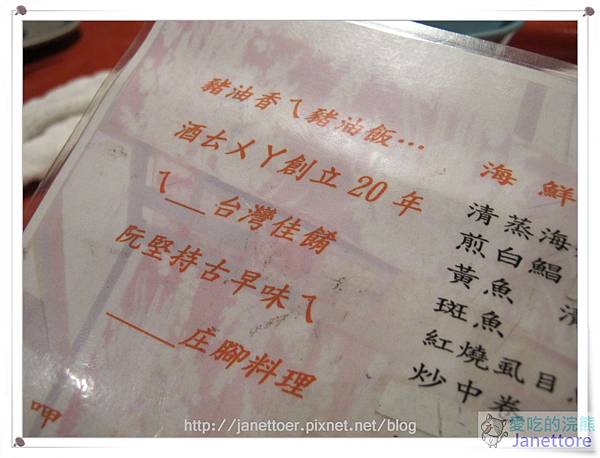 豬油香ㄟ豬油飯…
酒ㄊㄨㄚ創立20年
ㄟ__台灣佳餚
阮堅持古早味ㄟ
____庄腳料理
呷
海鮮
清蒸海
煎白鯧
黃魚 清
斑魚
紅燒虱目
炒中卷
http://janettoer.pixnet.net/blog
愛吃的浣熊
Janettore